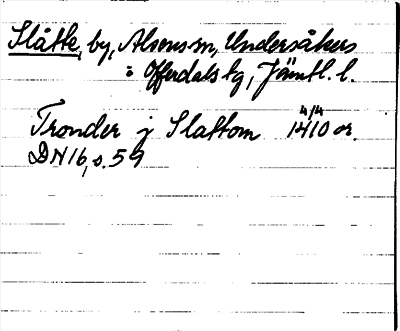 Slåtte, by, Alsens sn, Undersåkers
o Offerdals tg, Jämtl. l.
4/4
Tronder j Slattom 1410 or.
DN 16, s. 59